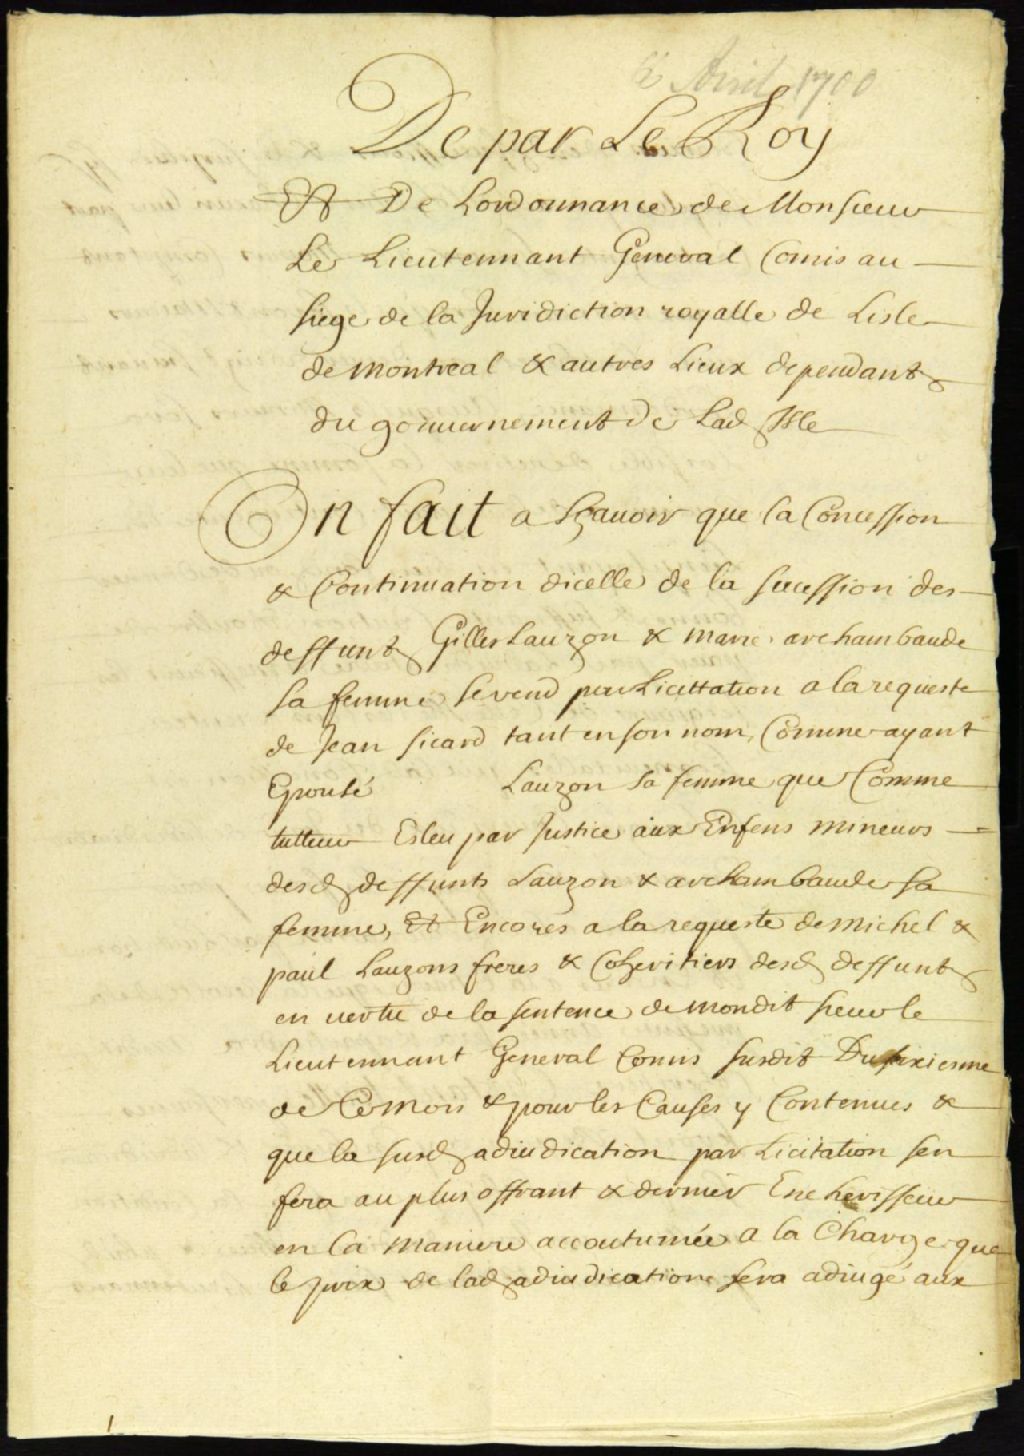 Avril 1700
De par Le Roy
Et De Lordonnance de Monsieur
Le Lieutennant General Comis au
siege de la Juridiction royalle de Lisle
de Montreal & autres Lieux dependants
du gouuernement de Lad Isle
On fait a Sçauoir que la Concession
& Continuation dicelle de la sucession des
deffunts Gilles Lauzon & marie archambaude
sa femme se vend par Licittation a la requeste
de Jean Sicard tant en son nom, Comme ayant
Epousé Lauzon sa femme que Comme
tutteur Esleu par Justice aux Enfens mineurs
desd deffunts Lauzon & archambaude sa
femme, Et Encores a la requeste de Michel &
paul Lauzons freres & Coheritiers desd deffunts
en vertu de la sentence de mondit sieur le
Lieutennant General Comis susdit Du sixiesme
de Ce Mois & pour les Causes y Contenues &
que la susd adiudication par Licitation sen
fera au plus offrant & dernier Encherisseur
en la Maniere accoutumée a la Charge que
le prix de lad adiudication sera adiugé aux